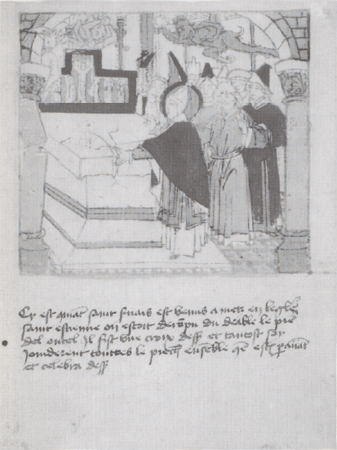 Cy est quāt saint est venus a mets en legles
saint estienne ou estoit derōpu du deable le pie
del outel Il fist une croix dess et tantost
Joinderent toutes le ensēble est
et celebra dess